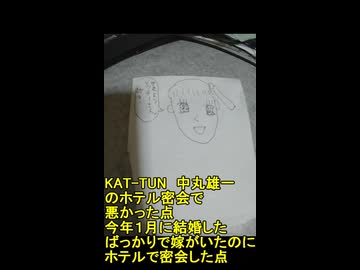 KAT-TUN 中丸雄一
のホテル密会で
悪かった点
今年１月に結婚した
ばっかりで嫁がいたのに
ホテルで密会した点